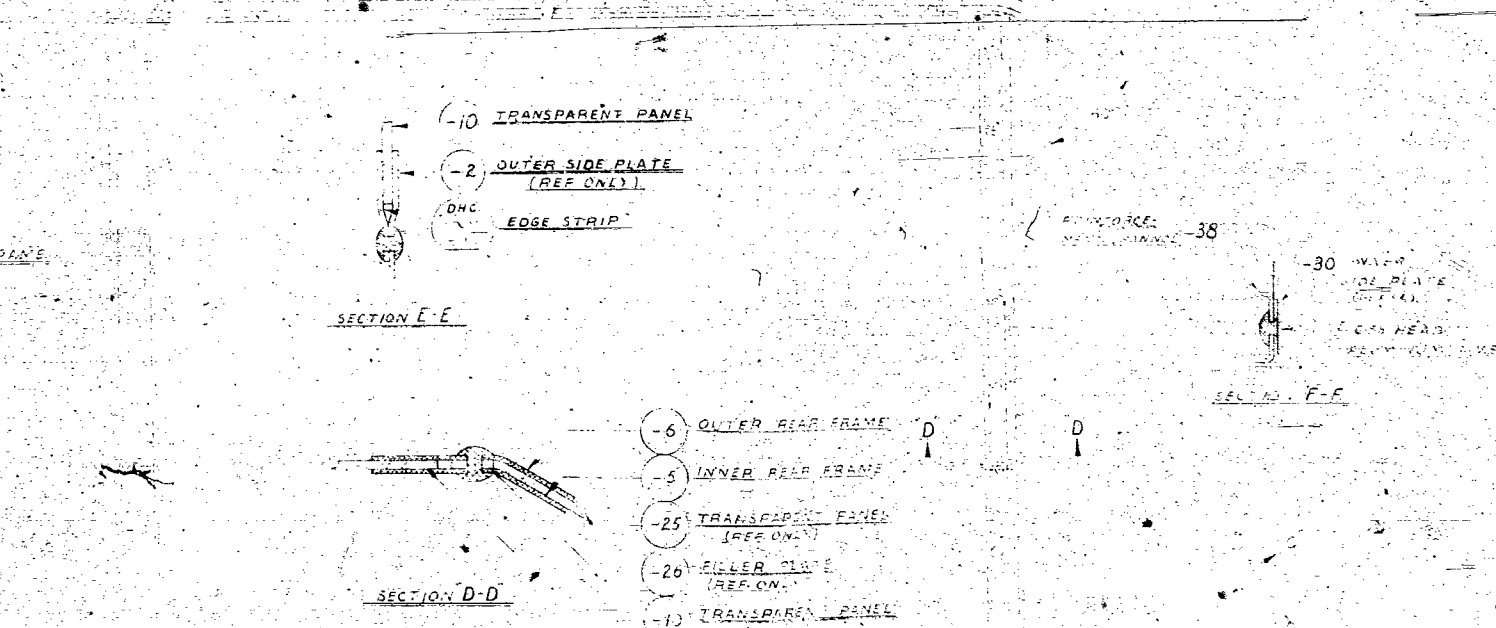 -10 TRANSPARENT PANEL
-2 OUTER SIDE PLATE
(REF ONLY)
DHC
EDGE STRIP
SECTION E-E
-38
-30
SIDE PLATE
HEAD
SECTION F-F
-6 OUTER REAR FRAME
D D
-5 INNER REAR FRAME
-25 TRANSPARENT PANEL
(REF ONLY)
-26 FILLER PLATE
(REF ONLY)
SECTION D-D
-10 TRANSPARENT PANEL